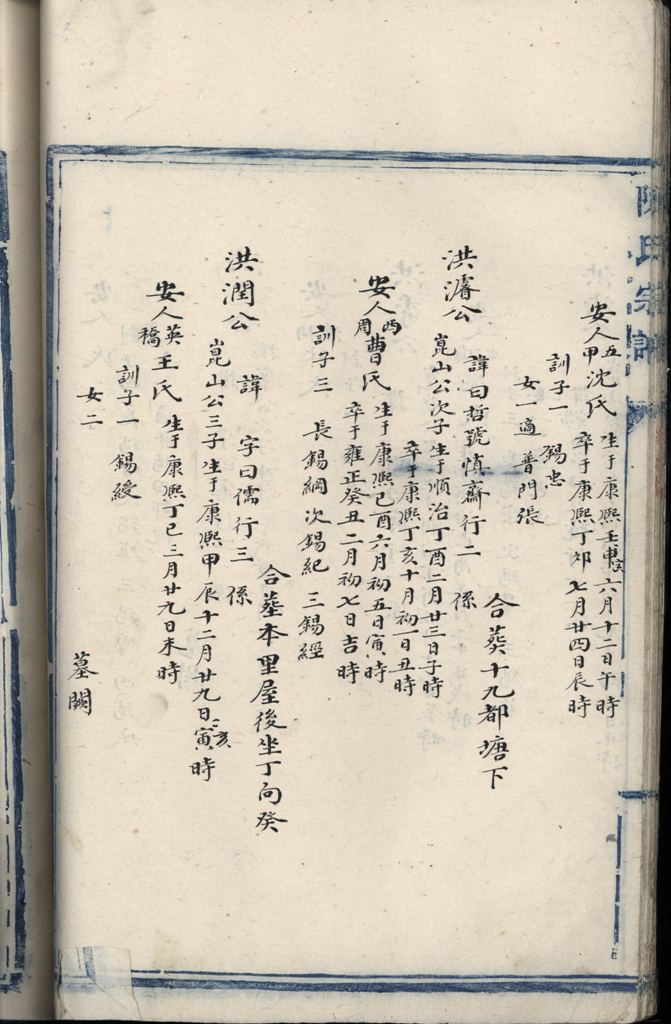 陳氏宗譜
安人五甲沈氏 生于康熙壬申六月十二日午時
卒于康熙丁卯七月廿四日辰時
訓子一 錫忠
女一適普門張
合葬十九都塘下
洪濬公 諱曰哲號慎齋行二 係
崑山公次子生于順治丁酉二月廿三日子時
卒于康熙丁亥十月初一日丑時
安人西周曹氏 生于康熙己酉六月初五日寅時
卒于雍正癸丑二月初七日吉時
訓子三 長錫綱次錫紀三錫經
合墓本里屋後坐丁向癸
洪潤公 諱 字曰儒行三 係
崑山公三子生于康熙甲辰十二月廿九日寅亥時
安人英橋王氏 生于康熙丁巳三月廿九日未時
訓子一錫綬
女二
墓闕